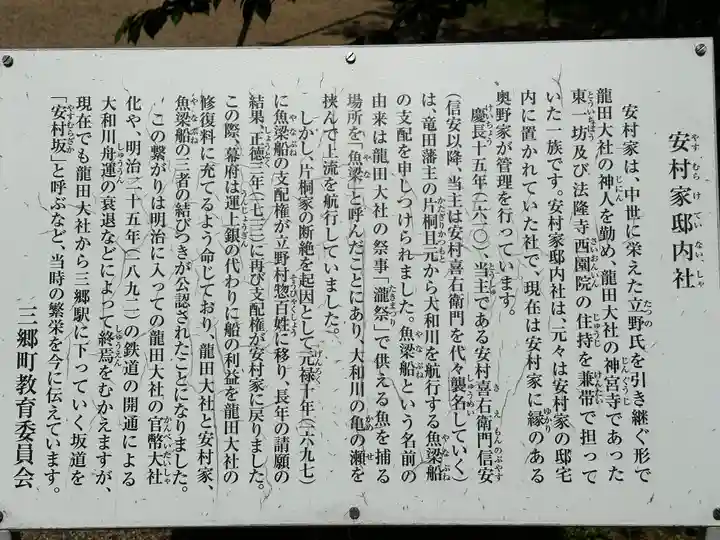 安村家邸内社
やすむらけていないしゃ
安村家は、中世に栄えた立野氏を引き継ぐ形で
龍田大社の神人を勤め、龍田大社の神宮寺であった
東一坊及び法隆寺西園院の住持を兼帯で担って
いた一族です。安村家邸内社は、元々は安村家の邸宅
内に置かれていた社で、現在は安村家に縁のある
奥野家が管理を行っています。
慶長十五年(一六一〇)、当主である安村喜右衛門信安
(信安以降、当主は安村喜右衛門を代々襲名していく)
は、竜田藩主の片桐且元から大和川を航行する魚梁船
の支配を申しつけられました。魚梁船という名前の
由来は龍田大社の祭事「瀧祭」で供える魚を捕る
場所を「魚梁」と呼んだことにあり、大和川の亀の瀬を
挟んで上流を航行していました。
しかし、片桐家の断絶を起因として元禄十年(一六九七)
に魚梁船の支配権が立野村惣百姓に移り、長年の請願の
結果、正徳三年(一七一三)に再び支配権が安村家に戻りました。
この際、幕府は運上銀の代わりに船の利益を龍田大社の
修復料に充てるよう命じており、龍田大社と安村家、
魚梁船の三者の結びつきが公認されたことになりました。
この繋がりは明治に入っての龍田大社の官幣大社
化や、明治二十五年(一八九二)の鉄道の開通による
大和川舟運の衰退などによって終焉をむかえますが、
現在でも龍田大社から三郷駅に下っていく坂道を
「安村坂」と呼ぶなど、当時の繁栄を今に伝えています。
三郷町教育委員会